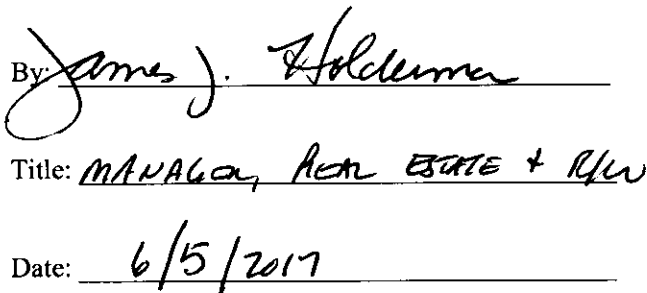 By: James J. Holderman
Title: MANAGER, REAL ESTATE + R/W
Date: 6/5/2017